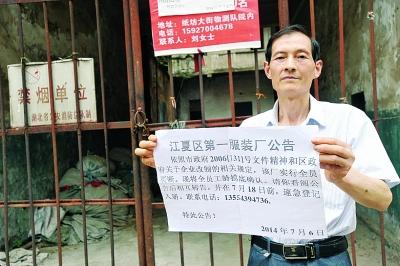 名
地址:纸坊大街物测队院内
电话:15927004678
联系人:刘女士
禁烟单位
江夏区第一服装厂公告
依照市政府2006[131]号文件精神和区政
府关于企业改制的相关规定,该厂实行全员
买断,现将全员工龄摇底确认。请你看到公
告后相互转告,并在7月18日前,速急登记
入册。联系电话:13554394736.
特此公告!
2014年7月6日